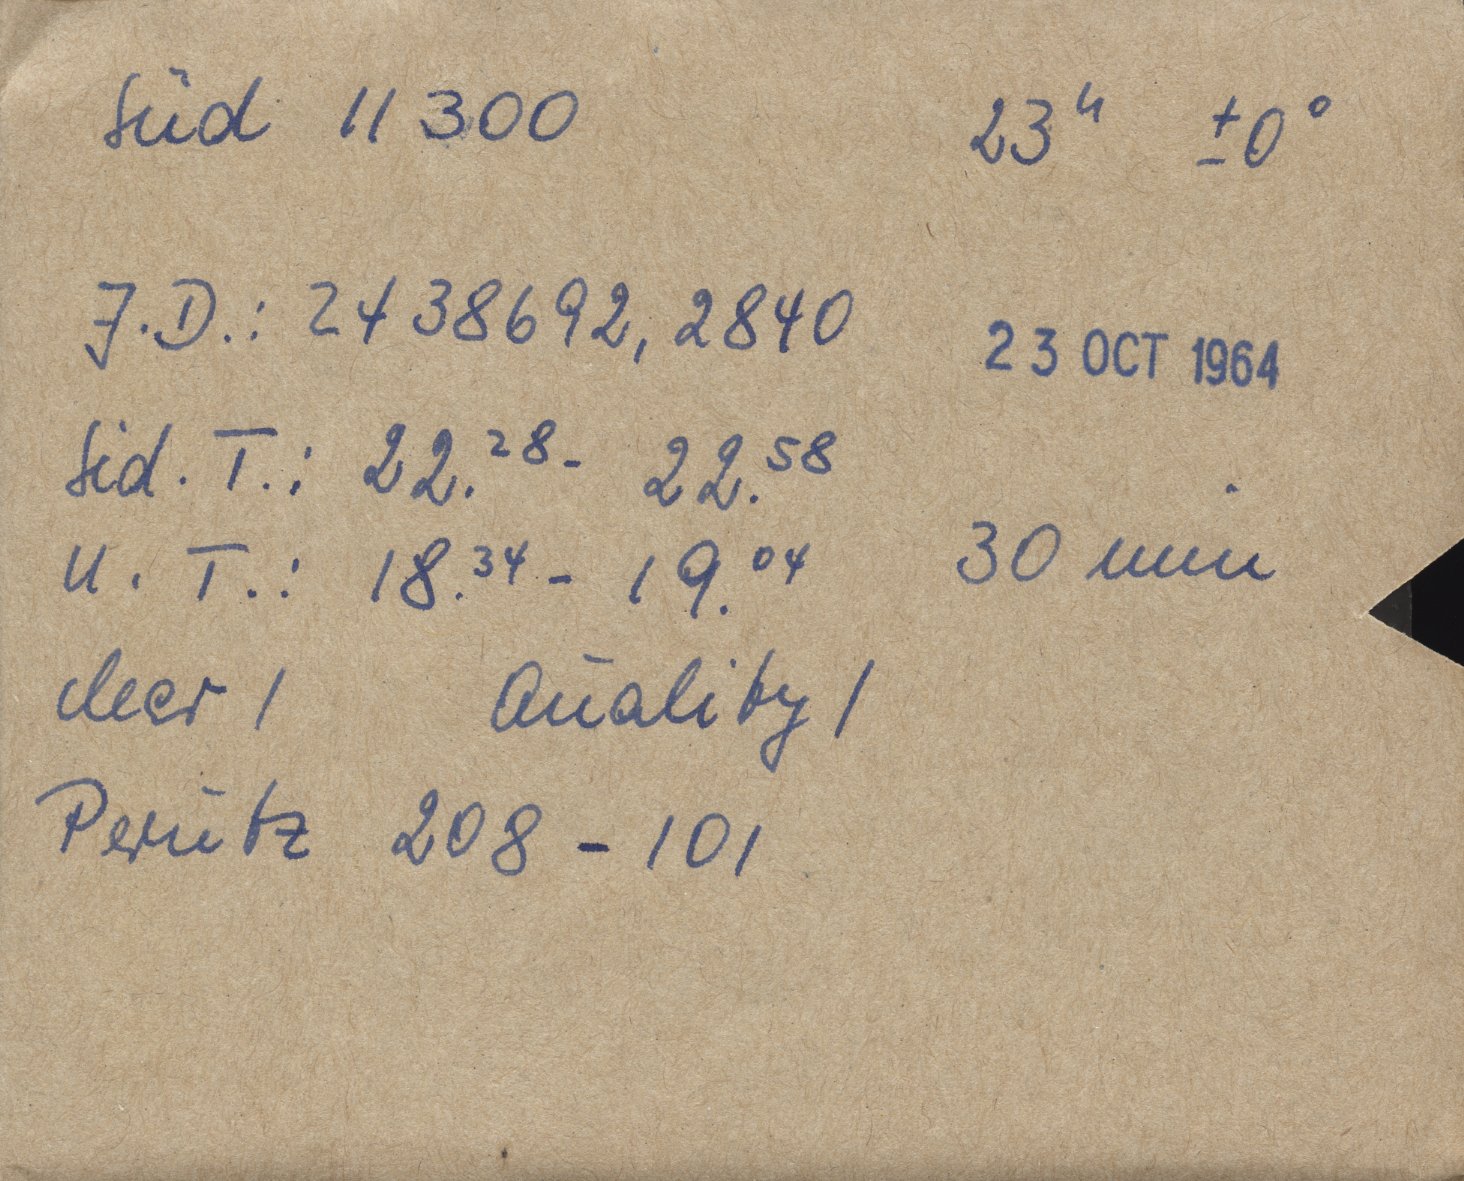 Süd 11300 23ʰ ±0°
J.D.: 2438692,2840 23 OCT 1964
Sid. T.: 22.²⁸- 22.⁵⁸
U. T.: 18.³⁴ - 19.⁰⁴ 30 min
clear 1 Quality 1
Perutz 208 - 101